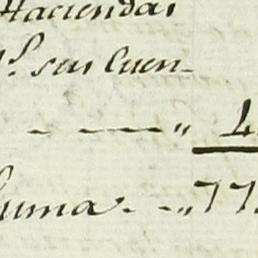 Haciendas
p.ʳ sus Cuen-
- - - " 4
Suma - - " 77